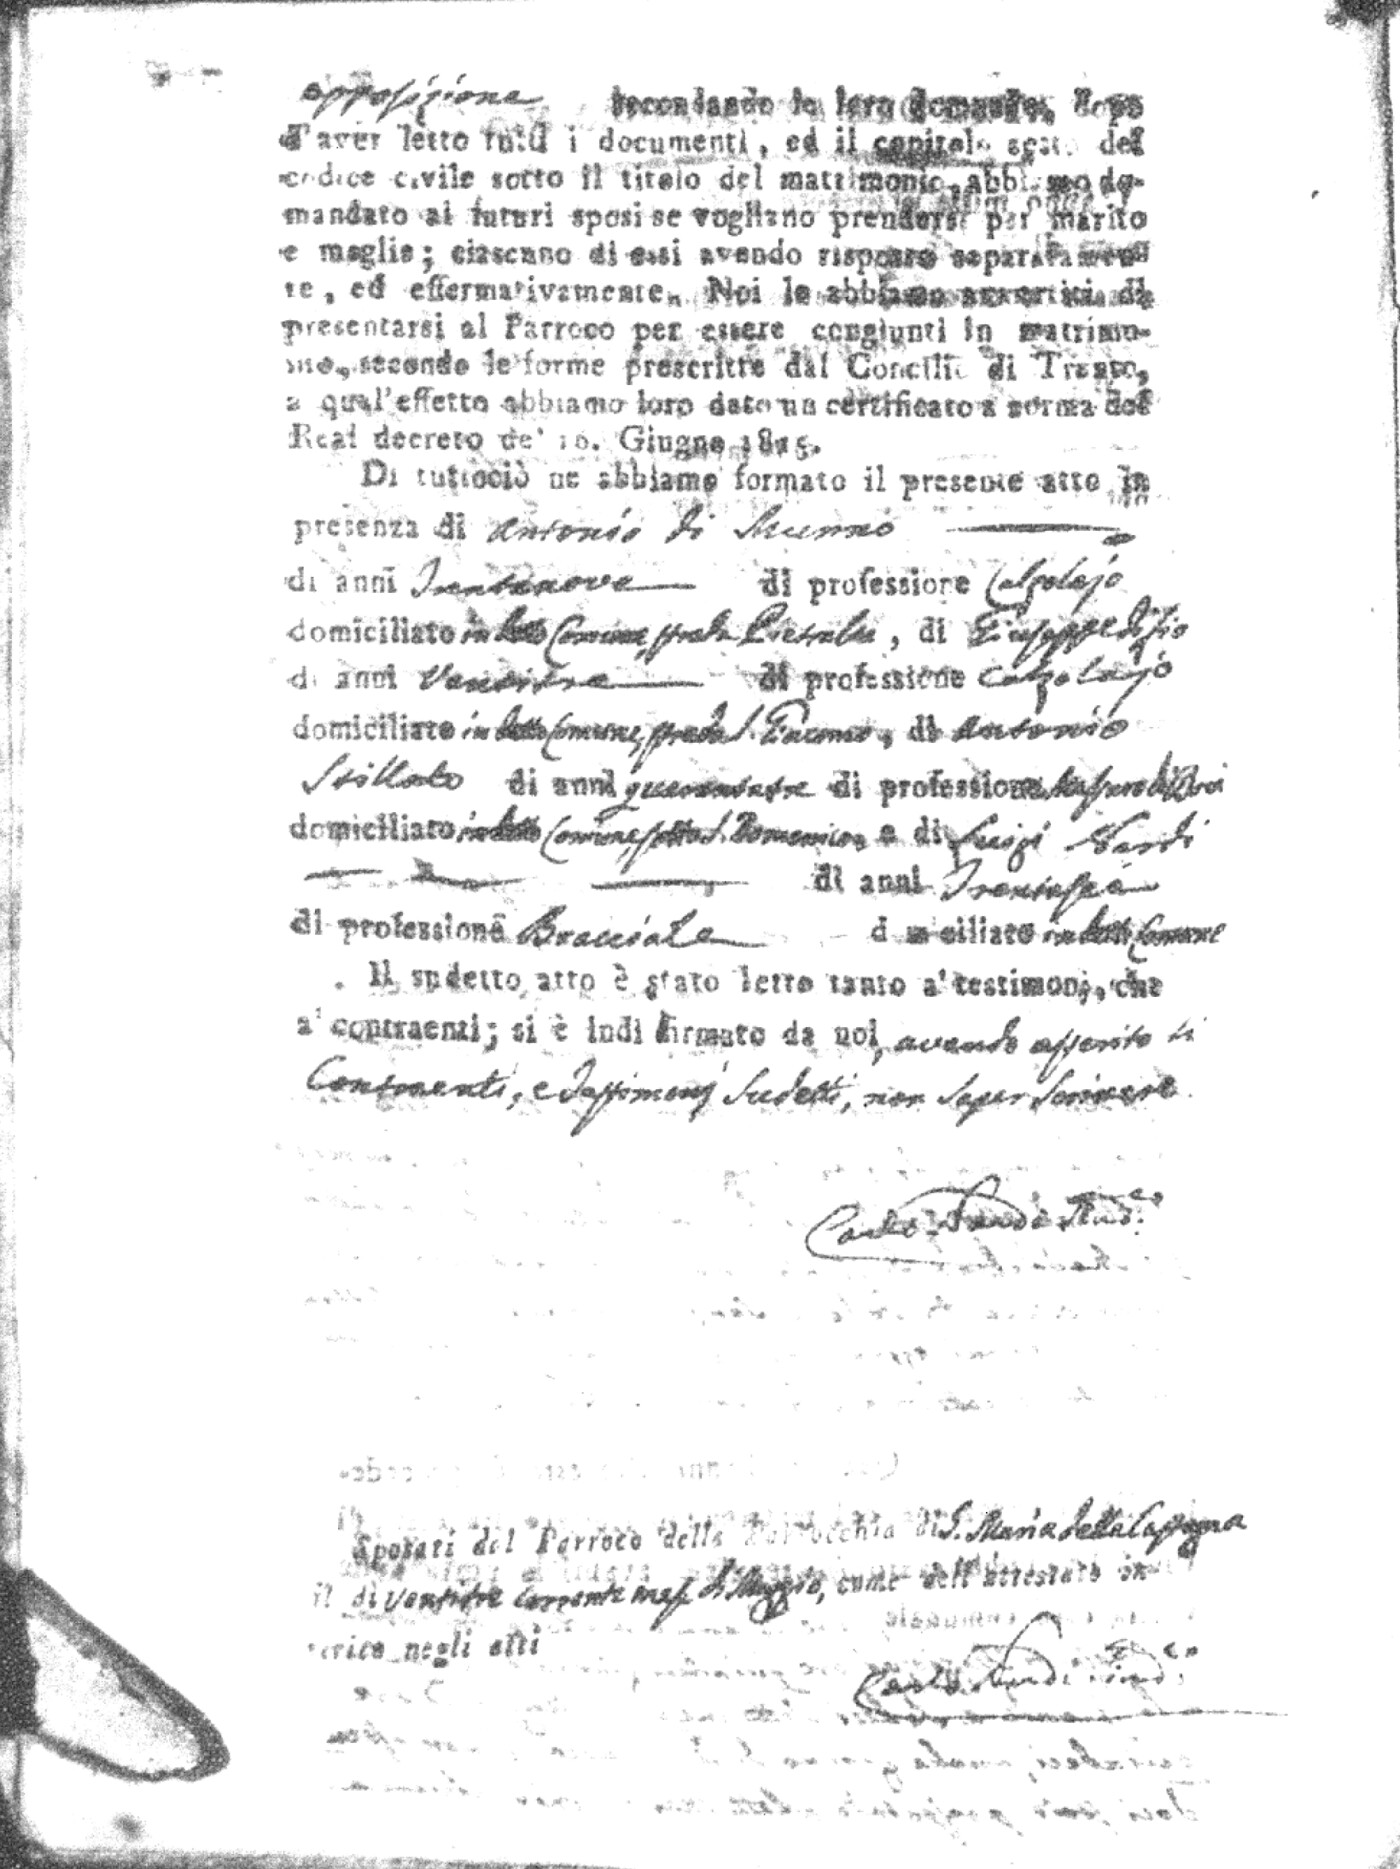 opposizione secondando le loro domande, dopo
d'aver letto tutti i documenti, ed il capitolo sesto del
codice civile sotto il titolo del matrimonio, abbiamo do-
mandato ai futuri sposi se vogliano prendersi per marito
e moglie; ciascuno di essi avendo risposto separatamen-
te, ed affermativamente. Noi le abbiamo avvertiti di
presentarsi al Parroco per essere congiunti in matrimo-
nio, secondo le forme prescritte dal Concilio di Trento,
a qual'effetto abbiamo loro dato un certificato a norma del
Real decreto de' 16. Giugno 1815.
Di tuttociò ne abbiamo formato il presente atto in
presenza di Antonio di Munno
di anni Trentanove di professione Calzolajo
domiciliato in detto Comune, strada , di Giuseppe
di anni Ventitre di professione Calzolajo
domiciliato in detto Comune, strada S. Giacomo, di Antonio
Stillato di anni quarantatre di professione
domiciliato in detto Comune, S. Domenico, e di Luigi Nardi
di anni Trentasei
di professione Bracciale domiciliato in detto Comune
Il sudetto atto è stato letto tanto a' testimonj, che
a' contraenti; si è indi firmato da noi, avendo asserito li
Contraenti, e Testimonj sudetti, non saper scrivere.
Carlo
Sposati dal Parroco della Parrocchia di S. Maria della
il di Ventitre corrente mese di Maggio, come dell'attestato in-
serito negli atti
Carlo